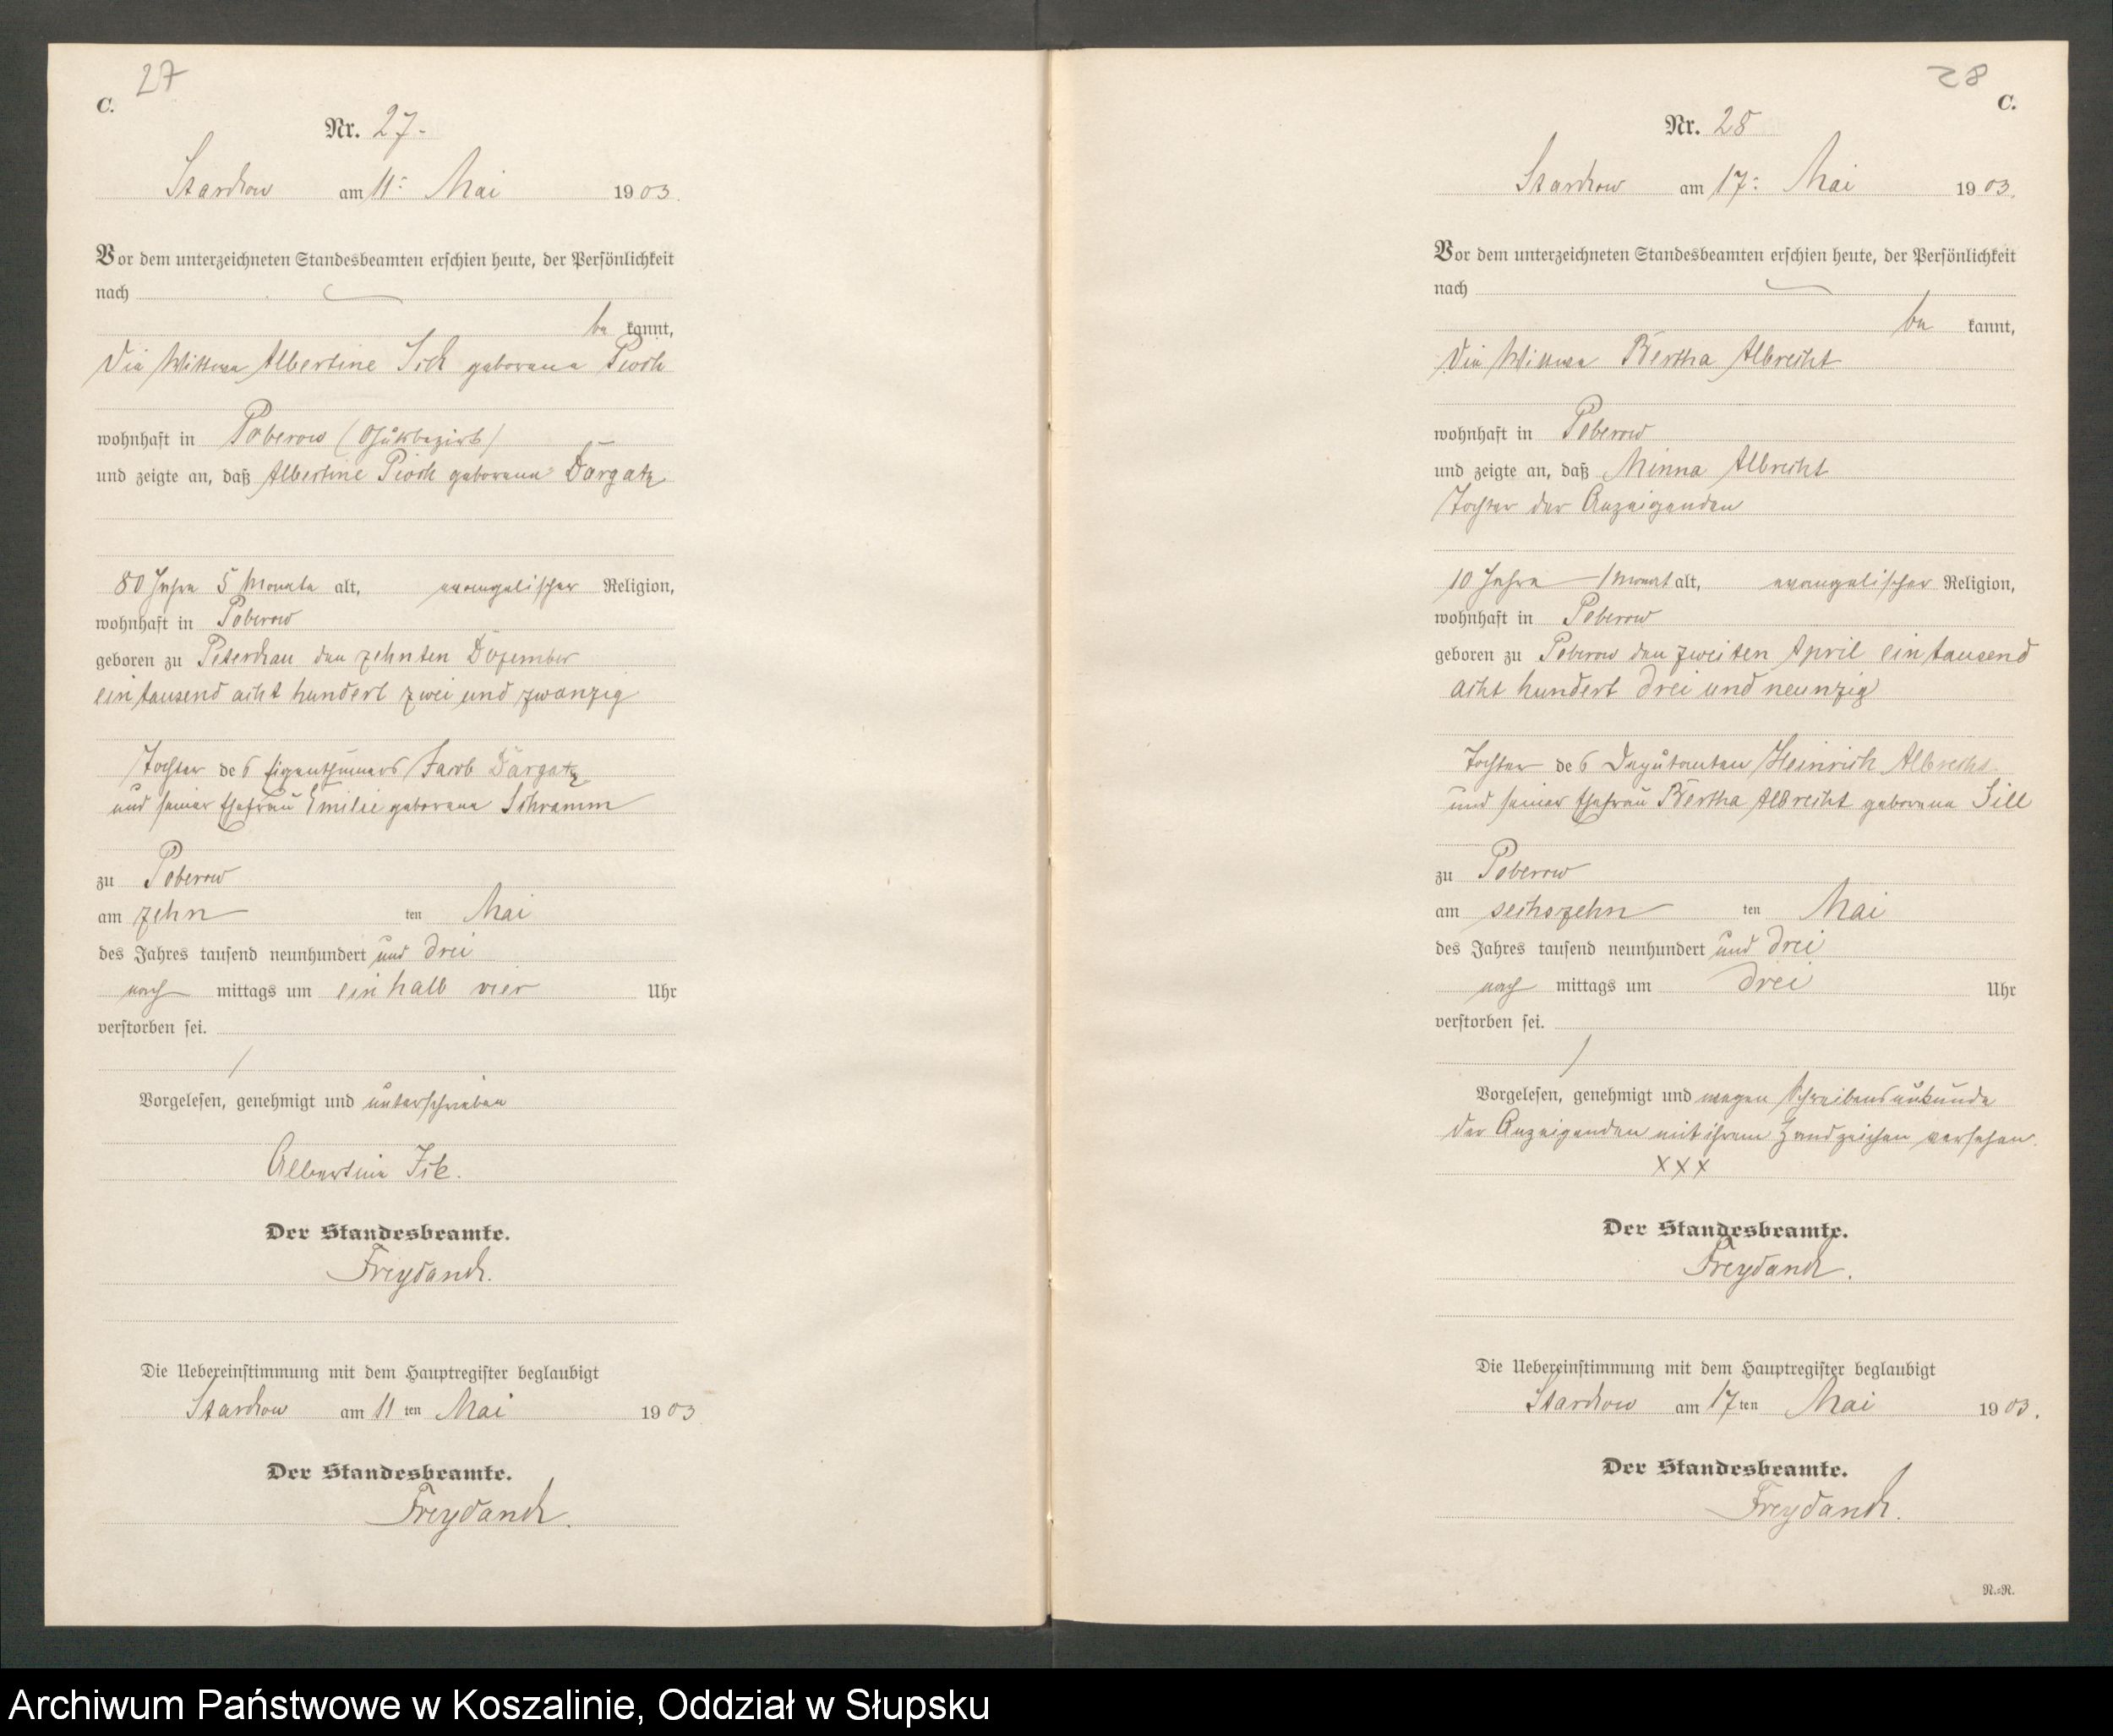 27
C.
Nr. 27.
Starchow am 11. Mai 1903.
Vor dem unterzeichneten Standesbeamten erschien heute, der Persönlichkeit
nach
be kannt,
die Wittwe Albertine Ick geborene Pioch
wohnhaft in Poberow (Gutsbezirk)
und zeigte an, daß Albertine Pioch geborene Dargatz
80 Jahre 5 Monate alt, evangelischer Religion,
wohnhaft in Poberow
geboren zu den zehnten Dezember
ein tausend acht hundert zwei und zwanzig
Tochter des Eigenthümers Jacob Dargatz
und seiner Ehefrau Emilie geborene Schramm
zu Poberow
am zehn ten Mai
des Jahres tausend neunhundert und drei
nach mittags um ein halb vier Uhr
verstorben sei.
Vorgelesen, genehmigt und unterschrieben
Albertine Ick.
Der Standesbeamte.
Freydanck.
Die Uebereinstimmung mit dem Hauptregister beglaubigt
Starchow am 11 ten Mai 1903
Der Standesbeamte.
Freydanck.
28
C.
Nr. 28
Starchow am 17. Mai 1903.
Vor dem unterzeichneten Standesbeamten erschien heute, der Persönlichkeit
nach
be kannt,
die Wittwe Bertha Albrecht
wohnhaft in Poberow
und zeigte an, daß Minna Albrecht
Tochter der Anzeigenden
10 Jahre 1 Monat alt, evangelischer Religion,
wohnhaft in Poberow
geboren zu Poberow den zweiten April ein tausend
acht hundert drei und neunzig
Tochter des Deputanten Heinrich Albrecht
und seiner Ehefrau Bertha Albrecht geborene Sill
zu Poberow
am sechszehn ten Mai
des Jahres tausend neunhundert und drei
nach mittags um drei Uhr
verstorben sei.
Vorgelesen, genehmigt und wegen Schreibensunkunde
der Anzeigenden mit ihrem Handzeichen versehen.
XXX
Der Standesbeamte.
Freydanck.
Die Uebereinstimmung mit dem Hauptregister beglaubigt
Starchow am 17 ten Mai 1903.
Der Standesbeamte.
Freydanck.
N.=R.
Archiwum Państwowe w Koszalinie, Oddział w Słupsku